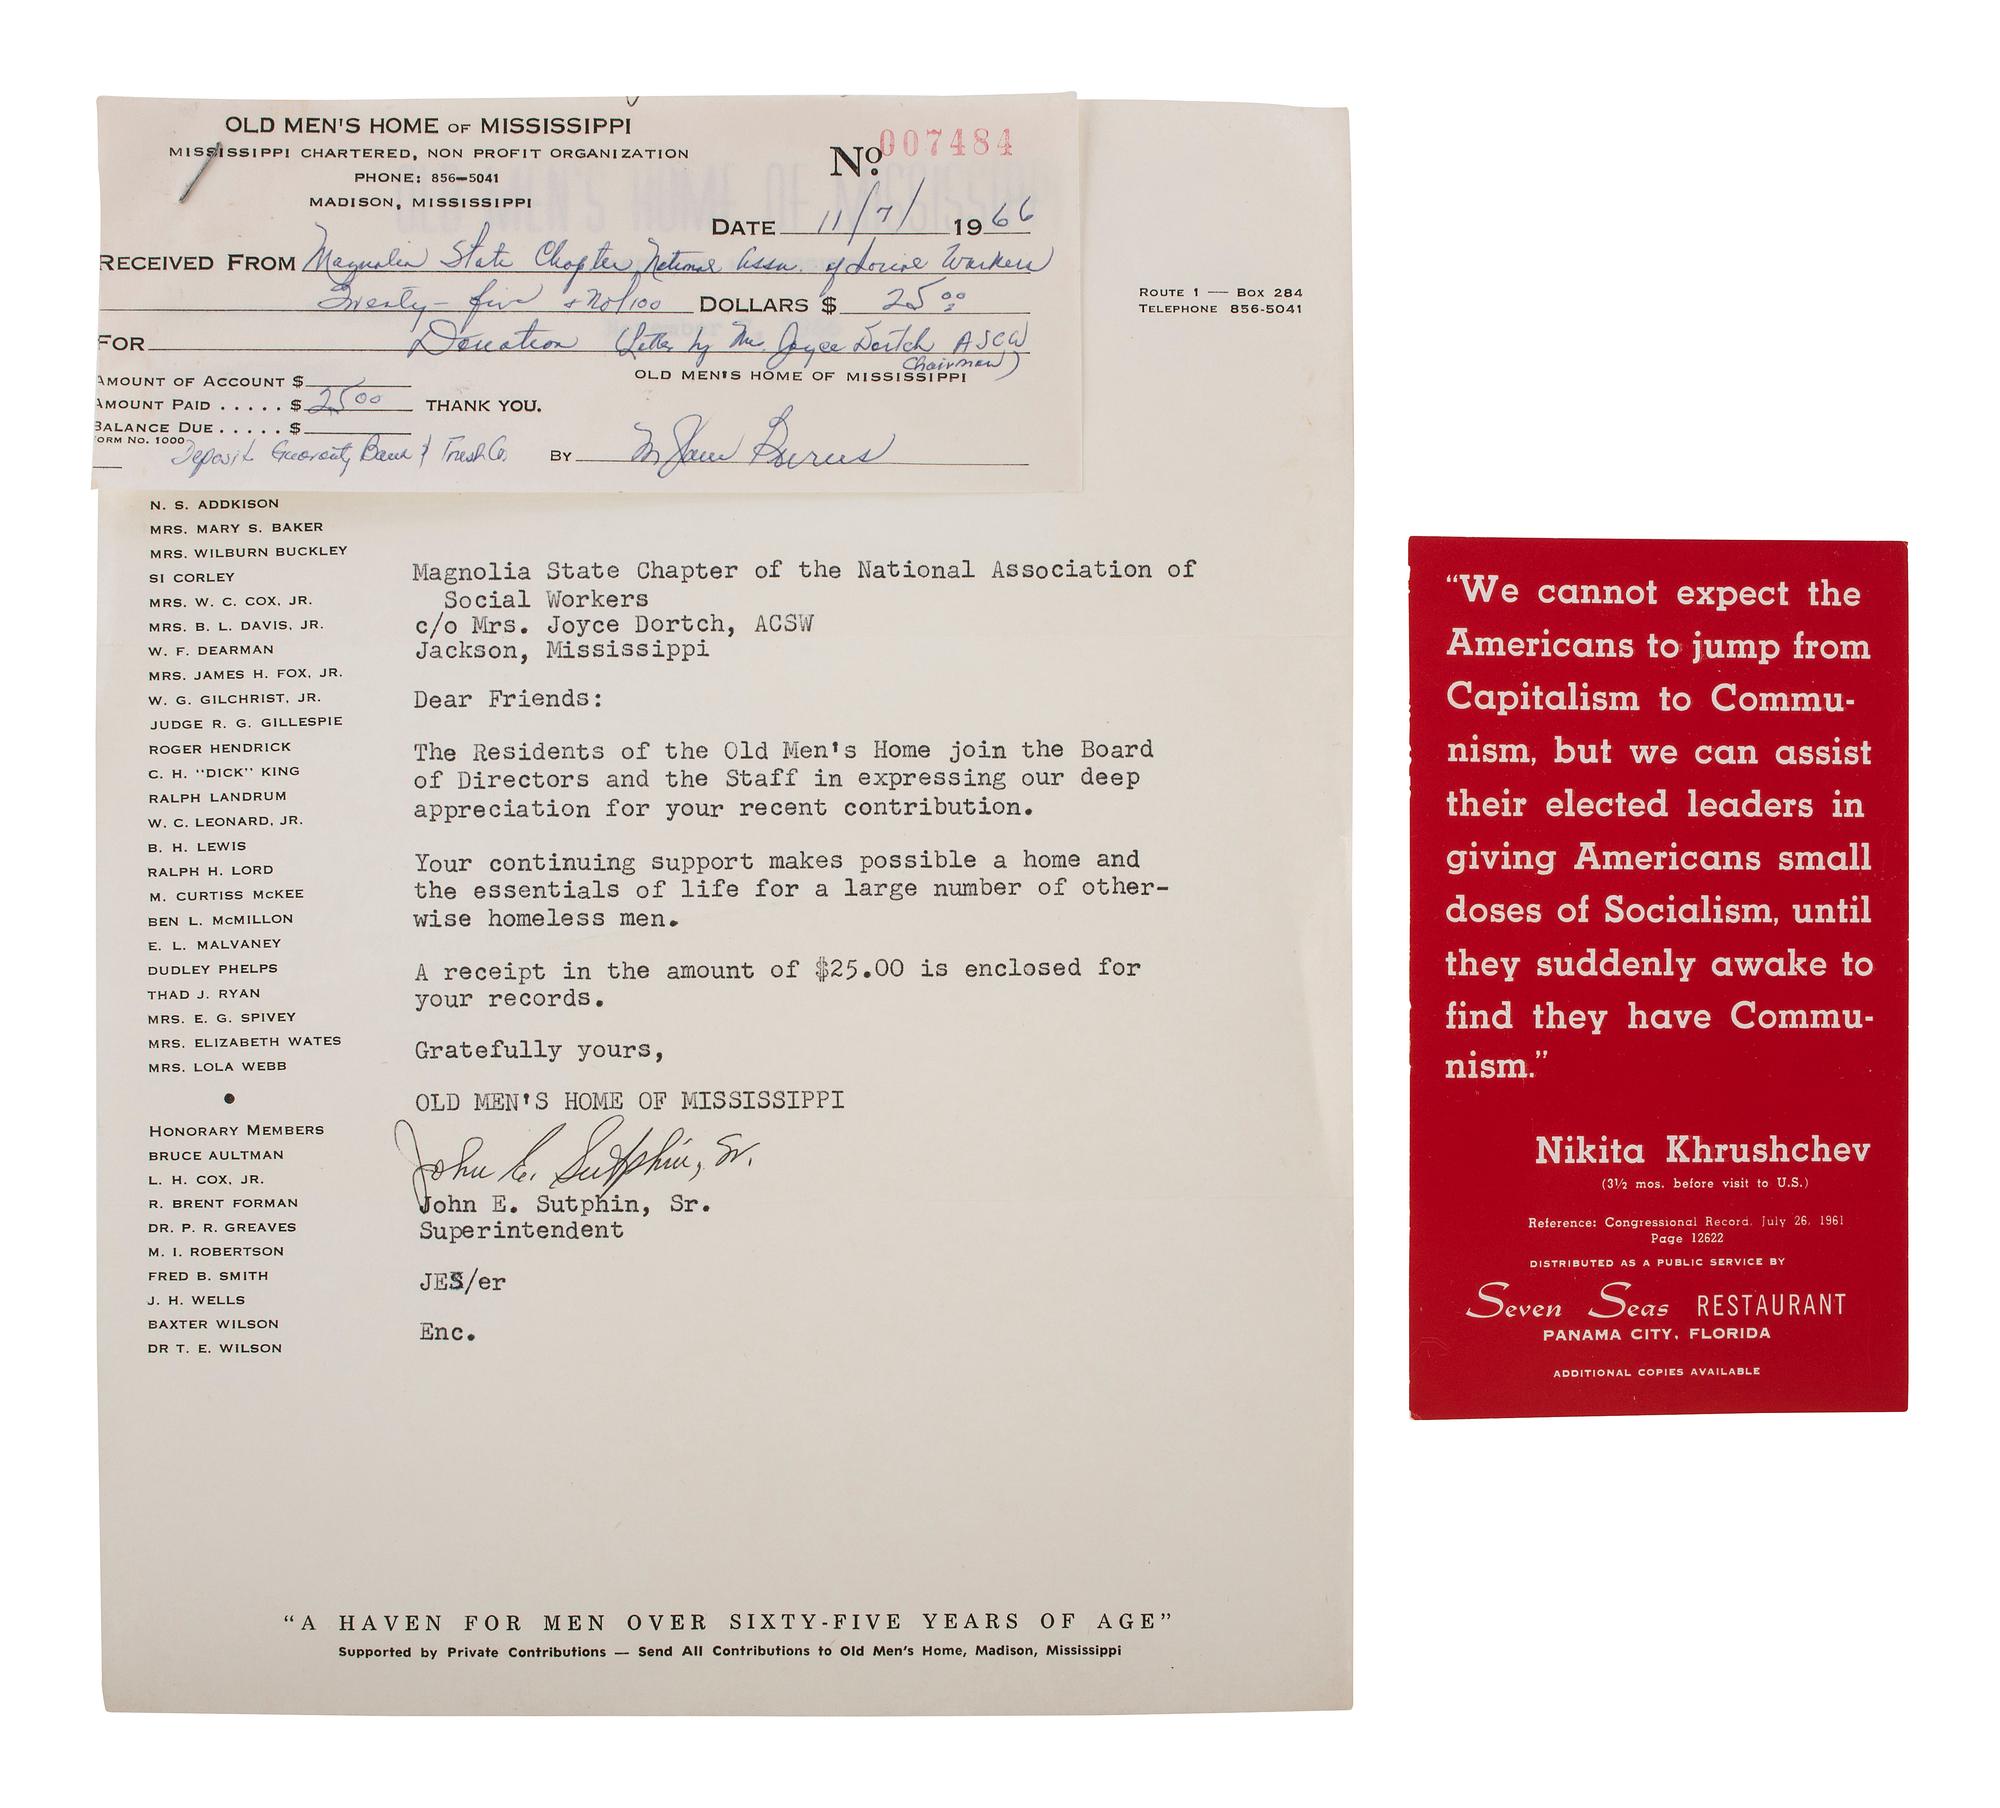 OLD MEN'S HOME OF MISSISSIPPI
MISSISSIPPI CHARTERED, NON PROFIT ORGANIZATION
PHONE: 856-5041
MADISON, MISSISSIPPI
No. 007484
DATE 11/7/ 1966
RECEIVED FROM Magnolia State Chapter National Assn. of Social Workers
Twenty-five & no/100 DOLLARS $ 25.00
FOR Donation (Letter by Mrs. Joyce Dortch ASCW
Chairman)
OLD MEN'S HOME OF MISSISSIPPI
AMOUNT OF ACCOUNT $
AMOUNT PAID ..... $ 25 00 THANK YOU.
BALANCE DUE ..... $
ORM NO. 1000
Deposit Guaranty Bank & Trust Co. BY Burns
ROUTE 1 — BOX 284
TELEPHONE 856-5041
N. S. ADDKISON
MRS. MARY S. BAKER
MRS. WILBURN BUCKLEY
SI CORLEY
MRS. W. C. COX, JR.
MRS. B. L. DAVIS, JR.
W. F. DEARMAN
MRS. JAMES H. FOX, JR.
W. G. GILCHRIST, JR.
JUDGE R. G. GILLESPIE
ROGER HENDRICK
C. H. "DICK" KING
RALPH LANDRUM
W. C. LEONARD, JR.
B. H. LEWIS
RALPH H. LORD
M. CURTISS McKEE
BEN L. McMILLON
E. L. MALVANEY
DUDLEY PHELPS
THAD J. RYAN
MRS. E. G. SPIVEY
MRS. ELIZABETH WATES
MRS. LOLA WEBB
HONORARY MEMBERS
BRUCE AULTMAN
L. H. COX, JR.
R. BRENT FORMAN
DR. P. R. GREAVES
M. I. ROBERTSON
FRED B. SMITH
J. H. WELLS
BAXTER WILSON
DR T. E. WILSON
Magnolia State Chapter of the National Association of
Social Workers
c/o Mrs. Joyce Dortch, ACSW
Jackson, Mississippi
Dear Friends:
The Residents of the Old Men's Home join the Board
of Directors and the Staff in expressing our deep
appreciation for your recent contribution.
Your continuing support makes possible a home and
the essentials of life for a large number of other-
wise homeless men.
A receipt in the amount of $25.00 is enclosed for
your records.
Gratefully yours,
OLD MEN'S HOME OF MISSISSIPPI
John E. Sutphin, Sr.
John E. Sutphin, Sr.
Superintendent
JES/er
Enc.
"A HAVEN FOR MEN OVER SIXTY-FIVE YEARS OF AGE"
Supported by Private Contributions — Send All Contributions to Old Men's Home, Madison, Mississippi
"We cannot expect the
Americans to jump from
Capitalism to Commu-
nism, but we can assist
their elected leaders in
giving Americans small
doses of Socialism, until
they suddenly awake to
find they have Commu-
nism."
Nikita Khrushchev
(3½ mos. before visit to U.S.)
Reference: Congressional Record, July 26, 1961
Page 12622
DISTRIBUTED AS A PUBLIC SERVICE BY
Seven Seas RESTAURANT
PANAMA CITY, FLORIDA
ADDITIONAL COPIES AVAILABLE